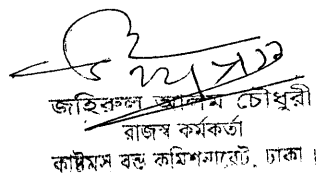 জহিরুল আলম চৌধুরী
রাজস্ব কর্মকর্তা
কাষ্টমস বন্ড কমিশনারেট, ঢাকা।